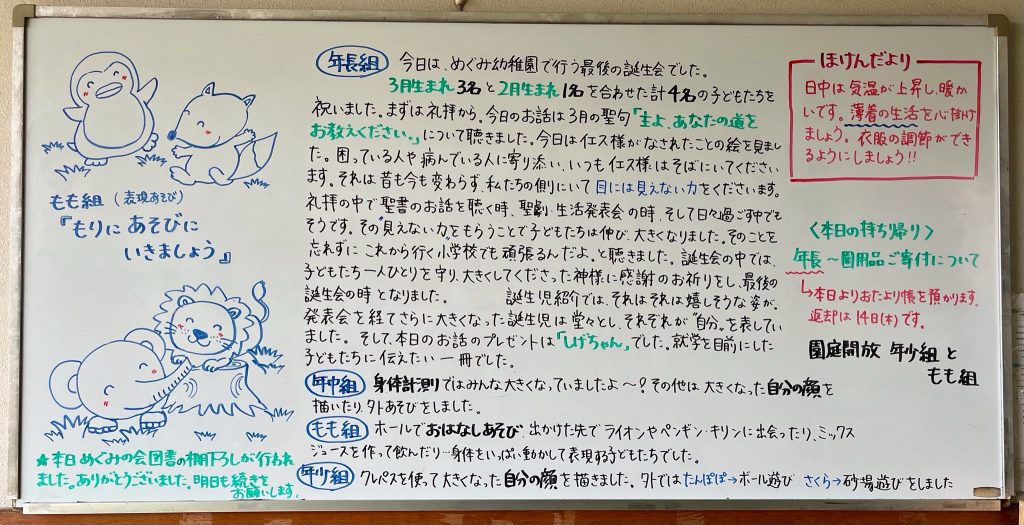 もも組(表現あそび)
『もりに あそびに
いきましょう』
★本日 めぐみの会図書の棚下ろしが行われ
ました。ありがとうございました。明日も続きを
お願いします。
年長組 今日は、めぐみ幼稚園で行う最後の誕生会でした。
3月生まれ3名と2月生まれ1名を合わせた計4名の子どもたちを
祝いました。まずは礼拝から。今日のお話は3月の聖句「主よ、あなたの道を
お教えください。」について聴きました。今日はイエス様がなされたことの絵を見まし
た。困っている人や病んでいる人に寄り添い、いつもイエス様はそばにいてください
ます。それは昔も今も変わらず、私たちの側にいて目には見えない力をくださいます。
礼拝の中で聖書のお話を聴く時、聖劇・生活発表会の時、そして日々過ごす中でも
そうです。その"見えない力"をもらうことで子どもたちは伸び、大きくなりました。そのことを
忘れずに これから行く小学校でも頑張るんだよ。と聴きました。誕生会の中では、
子どもたち一人ひとりを守り、大きくしてくださった神様に感謝のお祈りをし、最後の
誕生会の時となりました。 誕生児紹介では、それはそれは嬉しそうな姿が。
発表会を経てさらに大きくなった誕生児は堂々とし、それぞれが"自分"を表してい
ました。そして、本日のお話のプレゼントは「しげちゃん」でした。就学を目前にした
子どもたちに伝えたい一冊でした。
年中組 身体計測ではみんな大きくなっていましたよ〜?その他は大きくなった自分の顔を
描いたり、外あそびをしました。
もも組 ホールでおはなしあそび、出かけた先でライオンやペンギン・キリンに出会ったり、ミックス
ジュースを作って飲んだり…身体をいっぱい動かして表現する子どもたちでした。
年少組 クレパスを使って大きくなった自分の顔を描きました。外ではたんぽぽ→ボール遊び さくら→砂場遊びをしました
ほけんだより
日中は気温が上昇し、暖か
いです。薄着の生活を心掛け
ましょう。衣服の調節ができ
るようにしましょう!!
〈本日の持ち帰り〉
年長〜園用品ご寄付について
↳本日よりおたより帳を預かります。
返却は14日(木)です。
園庭開放 年少組と
もも組